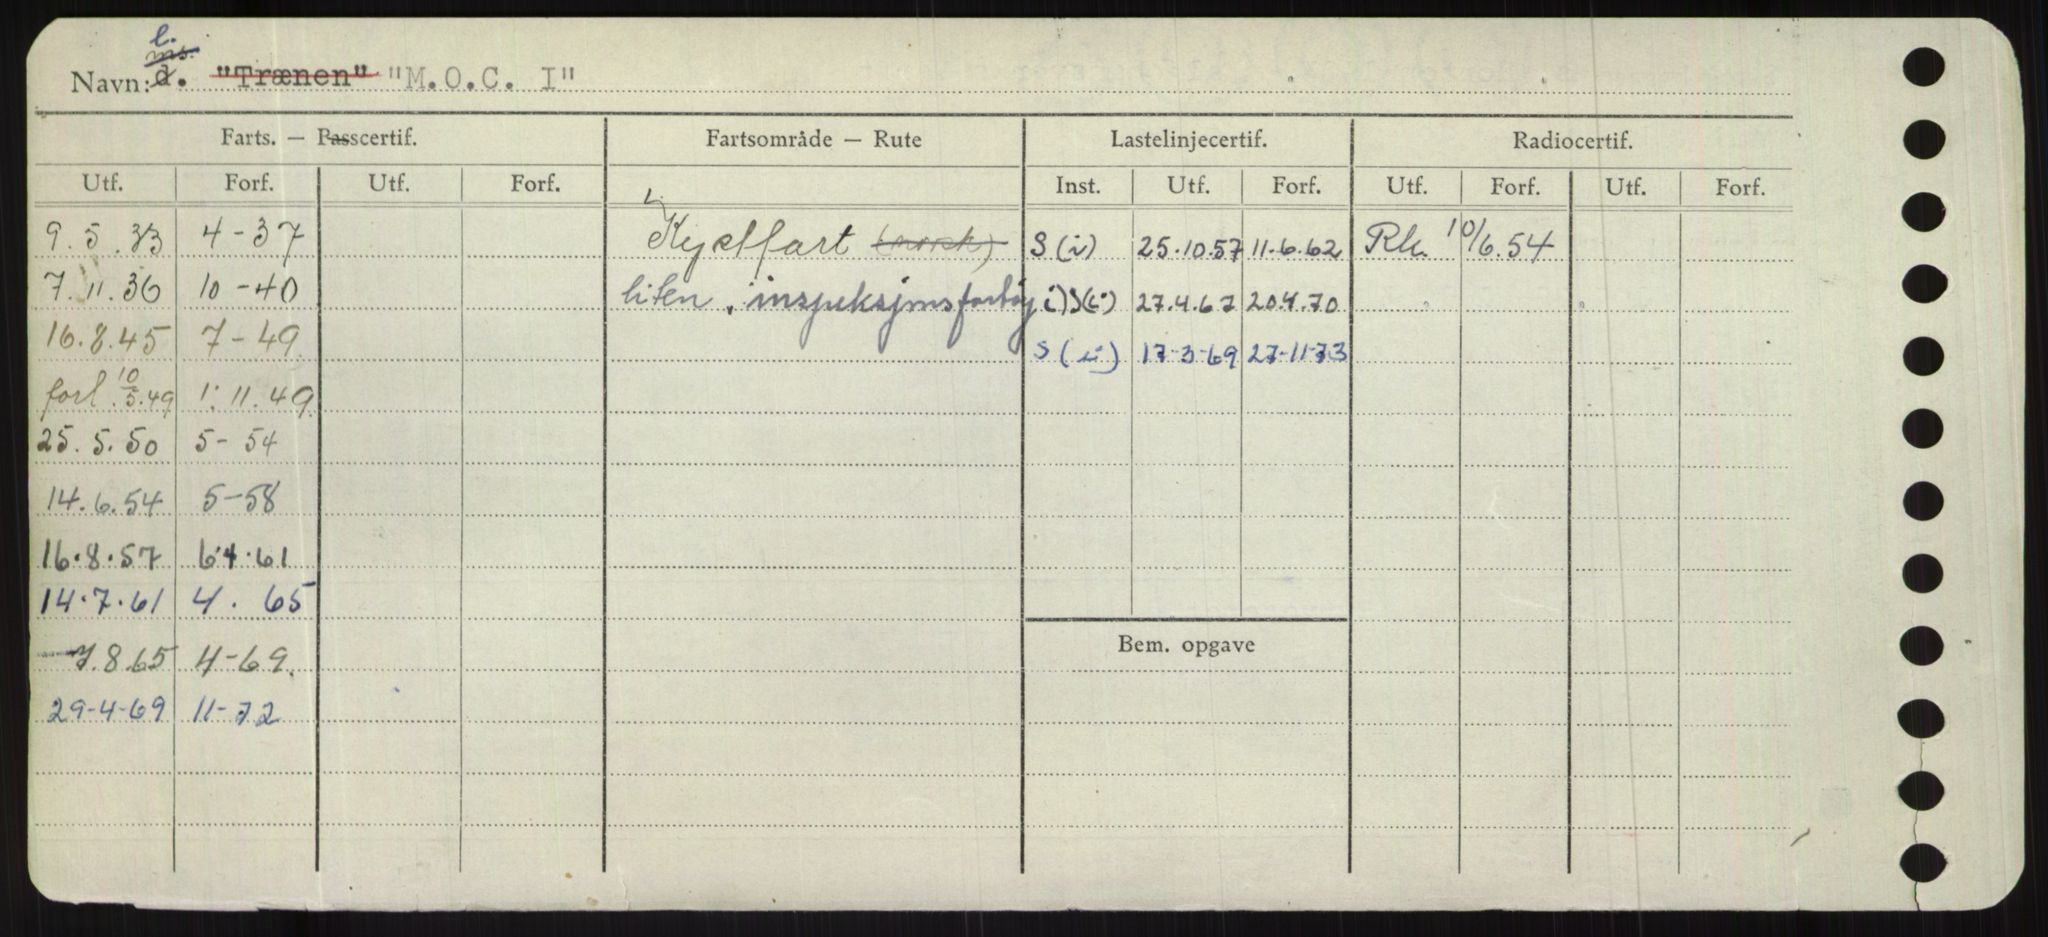 l.
ms.
Navn: d. "Trænen" "M.O.C. I"
Farts. — Passcertif. Fartsområde — Rute Lastelinjecertif. Radiocertif.
Utf. Forf. Utf. Forf. Inst. Utf. Forf. Utf. Forf. Utf. Forf.
9.5.33 4-37 Kystfart (norsk) S(i) 25.10.57 11.6.62 Rk. 10/6.54
7.11.36 10-40 liten inspeksjonsfartøy i) S(i) 27.4.67 20.4.70
16.8.45 7-49 S(i) 17-3-69 27-11-73
forl. 10/5.49 1.11.49
25.5.50 5-54
14.6.54 5-58
16.8.57 6.4.61
14.7.61 4. 65
7.8.65 4-69
Bem. opgave
29-4-69 11-72